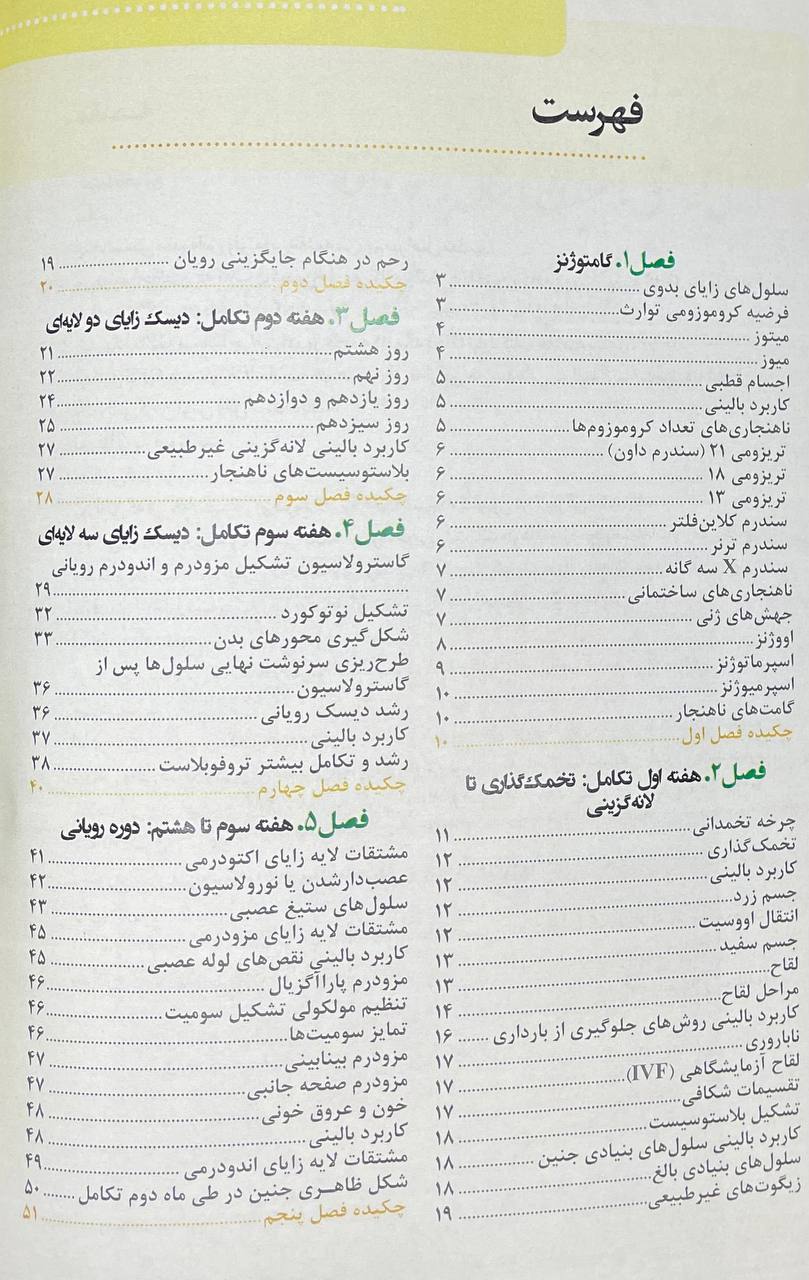 فهرست
فصل۱. گامتوژنز
سلول‌های زایای بدوی ........ ۳
فرضیه کروموزومی توارث ........ ۳
میتوز ........ ۴
میوز ........ ۴
اجسام قطبی ........ ۵
کاربرد بالینی ........ ۵
ناهنجاری‌های تعداد کروموزوم‌ها ........ ۵
تریزومی ۲۱ (سندرم داون) ........ ۶
تریزومی ۱۸ ........ ۶
تریزومی ۱۳ ........ ۶
سندرم کلاین‌فلتر ........ ۶
سندرم ترنر ........ ۶
سندرم X سه گانه ........ ۷
ناهنجاری‌های ساختمانی ........ ۷
جهش‌های ژنی ........ ۷
اووژنز ........ ۸
اسپرماتوژنز ........ ۹
اسپرمیوژنز ........ ۱۰
گامت‌های ناهنجار ........ ۱۰
چکیده فصل اول ........ ۱۰
فصل۲. هفته اول تکامل: تخمک‌گذاری تا
لانه‌گزینی
چرخه تخمدانی ........ ۱۱
تخمک‌گذاری ........ ۱۲
کاربرد بالینی ........ ۱۲
جسم زرد ........ ۱۲
انتقال اووسیت ........ ۱۲
جسم سفید ........ ۱۳
لقاح ........ ۱۳
مراحل لقاح ........ ۱۴
کاربرد بالینی روش‌های جلوگیری از بارداری ........ ۱۶
ناباروری ........ ۱۷
لقاح آزمایشگاهی (IVF) ........ ۱۷
تقسیمات شکافی ........ ۱۷
تشکیل بلاستوسیست ........ ۱۸
کاربرد بالینی سلول‌های بنیادی جنین ........ ۱۸
سلول‌های بنیادی بالغ ........ ۱۸
زیگوت‌های غیرطبیعی ........ ۱۹
رحم در هنگام جایگزینی رویان ........ ۱۹
چکیده فصل دوم ........ ۲۰
فصل۳. هفته دوم تکامل: دیسک زایای دو لایه‌ای
روز هشتم ........ ۲۱
روز نهم ........ ۲۲
روز یازدهم و دوازدهم ........ ۲۴
روز سیزدهم ........ ۲۵
کاربرد بالینی لانه‌گزینی غیرطبیعی ........ ۲۷
بلاستوسیست‌های ناهنجار ........ ۲۷
چکیده فصل سوم ........ ۲۸
فصل۴. هفته سوم تکامل: دیسک زایای سه لایه‌ای
گاسترولاسیون تشکیل مزودرم و اندودرم رویانی
........ ۲۹
تشکیل نوتوکورد ........ ۳۲
شکل‌گیری محورهای بدن ........ ۳۳
طرح‌ریزی سرنوشت نهایی سلول‌ها پس از
گاسترولاسیون ........ ۳۶
رشد دیسک رویانی ........ ۳۶
کاربرد بالینی ........ ۳۷
رشد و تکامل بیشتر تروفوبلاست ........ ۳۸
چکیده فصل چهارم ........ ۴۰
فصل۵. هفته سوم تا هشتم: دوره رویانی
مشتقات لایه زایای اکتودرمی ........ ۴۱
عصب‌دارشدن یا نورولاسیون ........ ۴۲
سلول‌های ستیغ عصبی ........ ۴۳
مشتقات لایه زایای مزودرمی ........ ۴۵
کاربرد بالینی نقص‌های لوله عصبی ........ ۴۵
مزودرم پاراآگزیال ........ ۴۶
تنظیم مولکولی تشکیل سومیت ........ ۴۶
تمایز سومیت‌ها ........ ۴۶
مزودرم بینابینی ........ ۴۷
مزودرم صفحه جانبی ........ ۴۷
خون و عروق خونی ........ ۴۸
کاربرد بالینی ........ ۴۸
مشتقات لایه زایای اندودرمی ........ ۴۹
شکل ظاهری جنین در طی ماه دوم تکامل ........ ۵۰
چکیده فصل پنجم ........ ۵۱